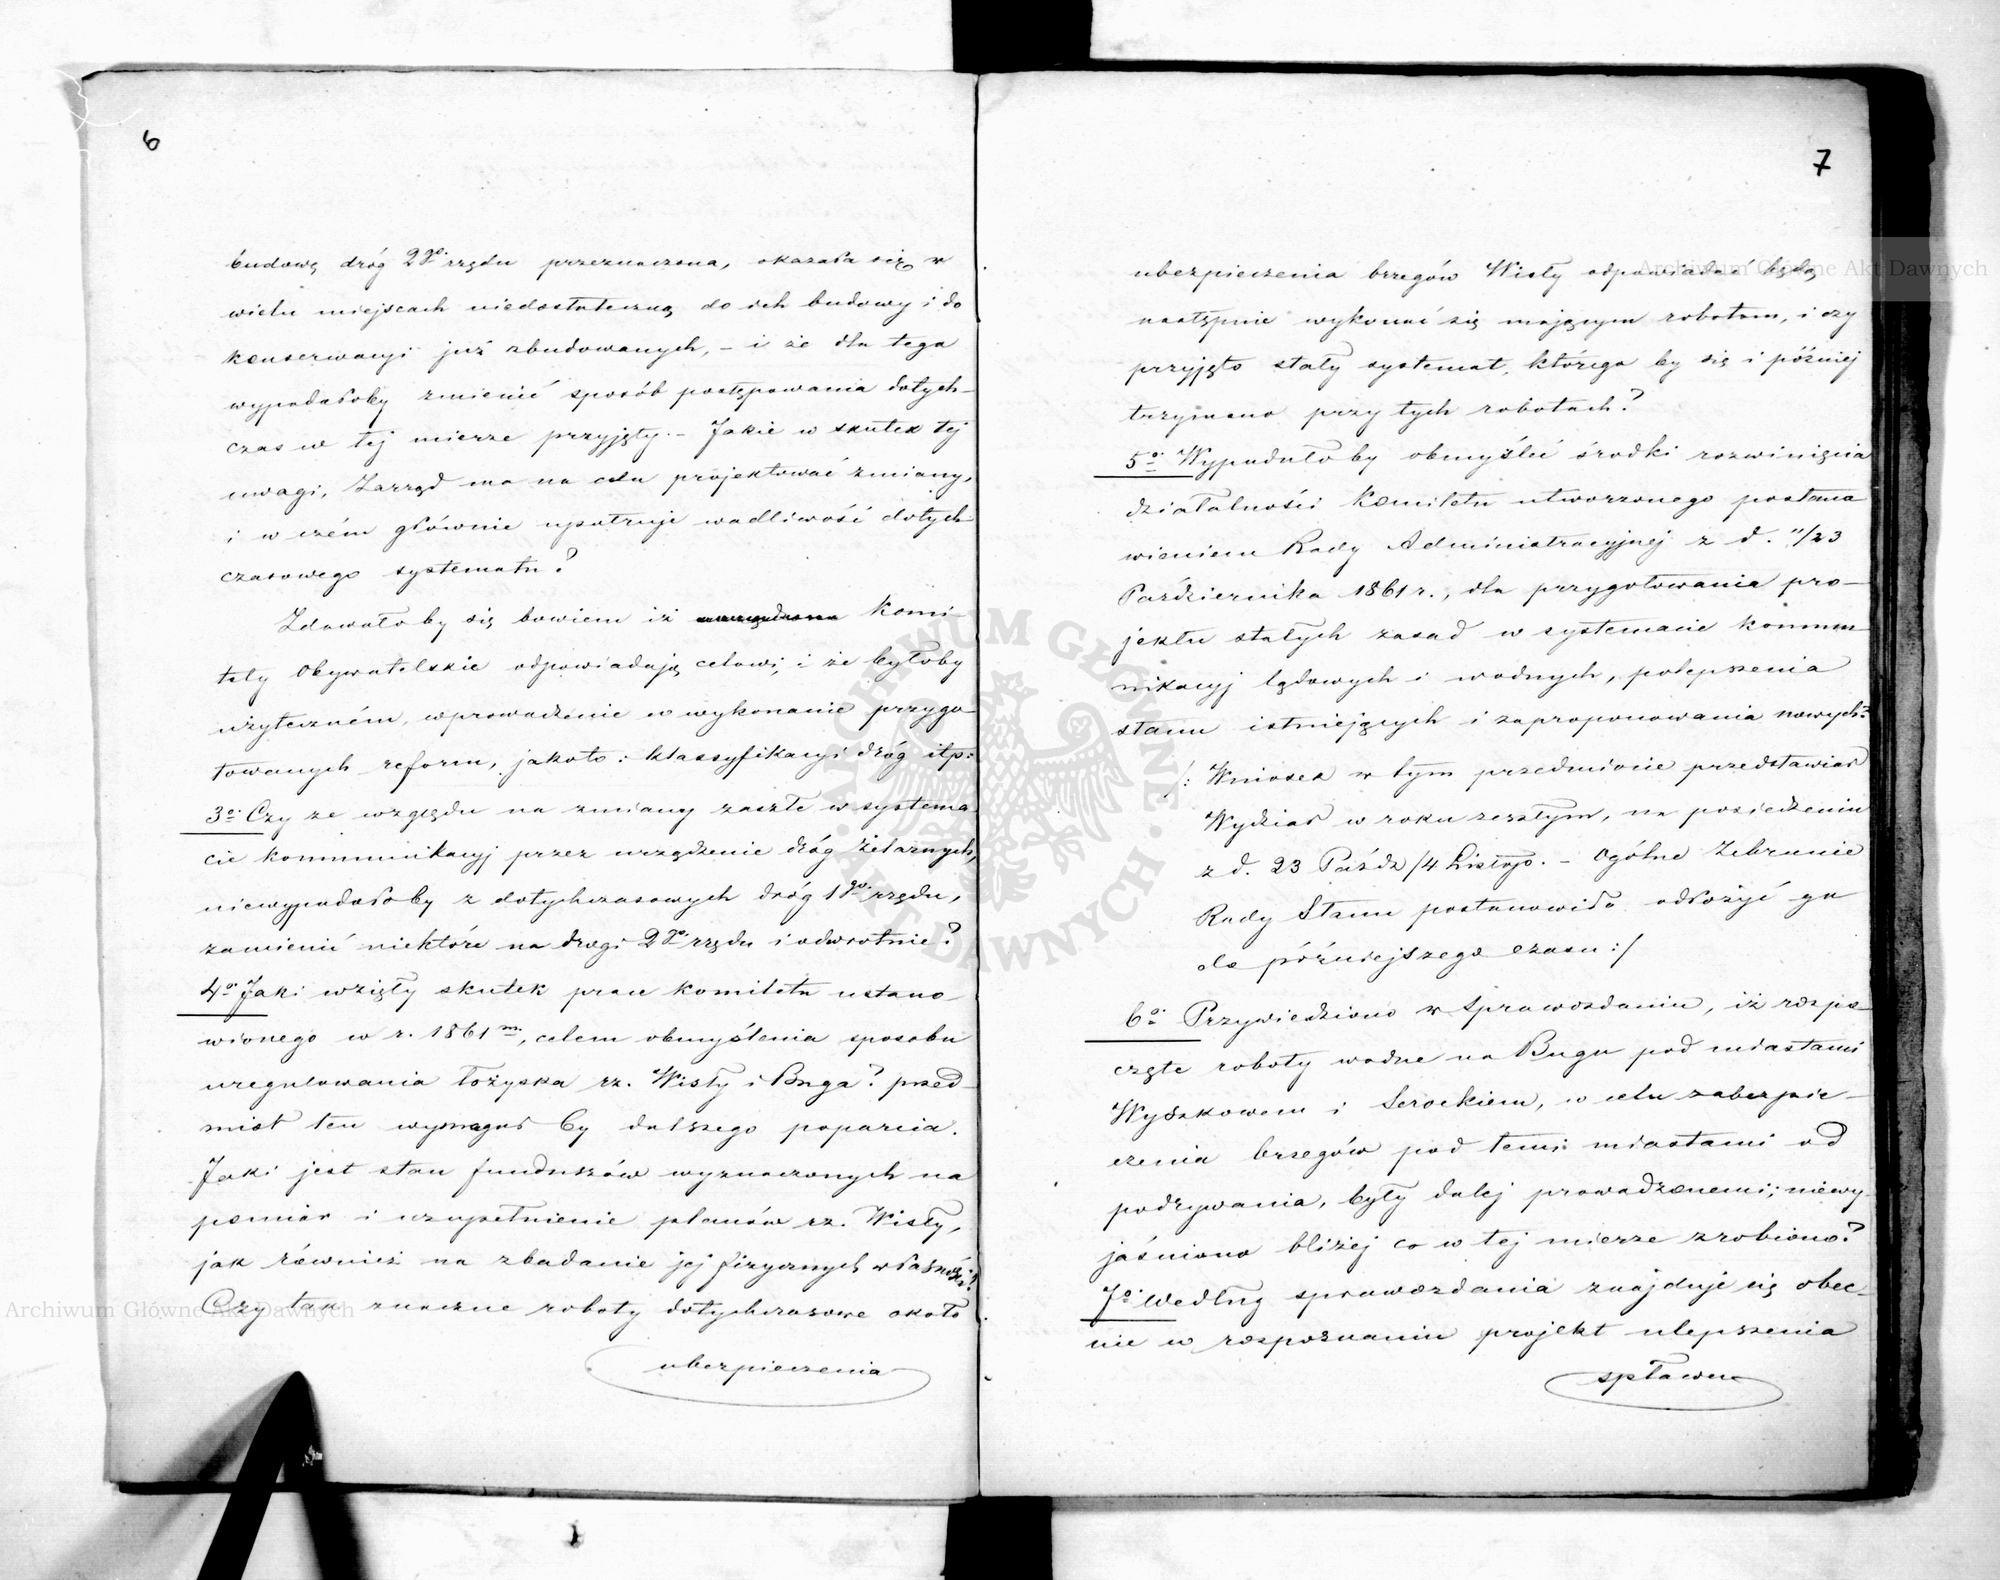 6
budowę dróg 2go rzędu przeznaczona, okazała się w
wielu miejscach niedostateczną do ich budowy i do
konserwacyi już zbudowanych, – i że dla tego
wypadałoby zmienić sposób postępowania dotych-
czas w tej mierze przyjęty. – Jakie w skutek tej
uwagi, Zarząd ma na celu projektować zmiany,
i w czém głównie upatruje wadliwość dotych-
czasowego systematu?
Zdawałoby się bowiem iż Komi-
tety Obywatelskie odpowiadają celowi; i że byłoby
użyteczném, wprowadzenie w wykonanie przygo-
towanych reform, jakoto: klassyfikacyi dróg itp:
3o Czy ze względu na zmiany zaszłe w systema-
cie kommunikacyj przez urządzenie dróg żelaznych,
niewypadałoby z dotychczasowych dróg 1go rzędu,
zamienić niektóre na drogi 2go rzędu i odwrotnie?
4o Jaki wzięły skutek prace komitetu ustano-
wionego w r. 1861m, celem obmyślenia sposobu
uregulowania łożyska rz. Wisły i Buga? przed-
miot ten wymagał by dalszego poparcia.
Jaki jest stan funduszów wyznaczonych na
pomiar i uzupełnienie planów rz. Wisły,
jak również na zbadanie jej fizycznych własności?
Czy tak znaczne roboty dotychczasowe około
ubezpieczenia
7
ubezpieczenia brzegów Wisły odpowiadać będą
następnie wykonać się mającym robotom, i czy
przyjęto stały systemat, którego by się i później
trzymano przy tych robotach?
5o Wypadałoby obmyśleć środki rozwinięcia
działalności Komitetu utworzonego postano
wieniem Rady Administracyjnej z d. 11/23
Października 1861 r., dla przygotowania pro-
jektu stałych zasad w systemacie kommu-
nikacyj lądowych i wodnych, polepszenia
stanu istniejących i zaproponowania nowych?
/: Wniosek w tym przedmiocie przedstawiał
Wydział w roku zeszłym, na posiedzeniu
z d. 23 Paźdz/4 Listop. – Ogólne Zebranie
Rady Stanu postanowiło odłożyć go
do późniejszego czasu :/
6o Przywiedziono w Sprawozdaniu, iż rozpo-
częte roboty wodne na Bugu pod miastami
Wyszkowem i Serockiem, w celu zabezpie-
czenia brzegów pod temi miastami od
podrywania, były dalej prowadzonemi; niewy-
jaśniono bliżej co w tej mierze zrobiono?
7o Według sprawozdania znajduje się obec-
nie w rozpoznaniu projekt ulepszenia
spławu
Archiwum Główne Akt Dawnych
Archiwum Główne Akt Dawnych
ARCHIWUM GŁÓWNE AKT DAWNYCH